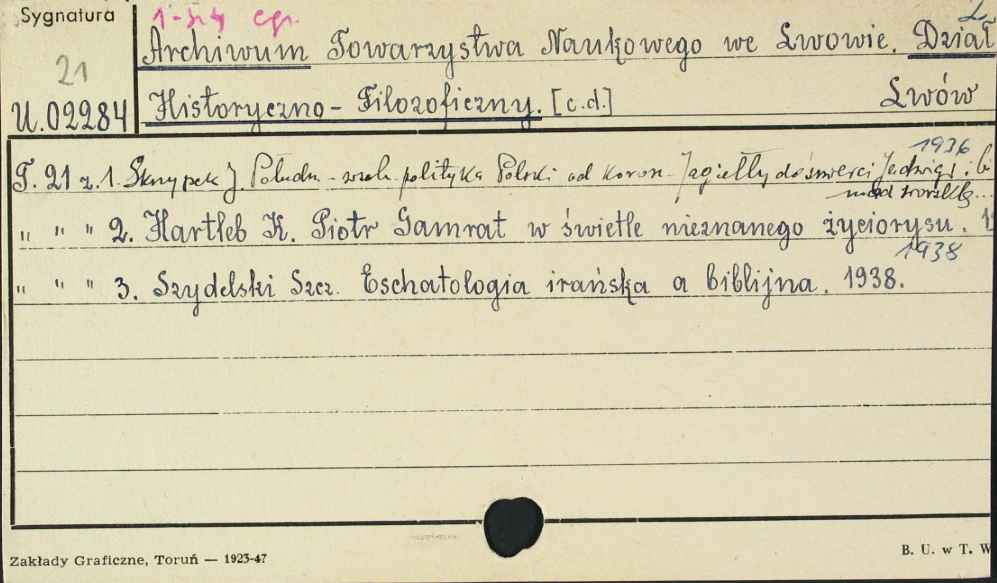 Sygnatura
1-szy egz.
21
U.02284
Archiwum Towarzystwa Naukowego we Lwowie. Dział
Historyczno-Filozoficzny. [c.d.] Lwów
1936
T. 21 z. 1. Skrzypek J. Połudn.-wsch. polityka Polski od koron. Jagiełły do śmierci Jadwigi i
nad
" " " 2. Hartleb K. Piotr Gamrat w świetle nieznanego życiorysu.
1938
" " " 3. Szydelski Szcz. Eschatologia irańska a biblijna. 1938.
Zakłady Graficzne, Toruń — 1923-47
B. U. w T. W